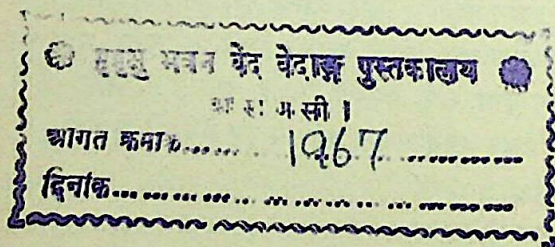 मुमुक्षु भवन वेद वेदाङ्ग पुस्तकालय
वा रा ण सी ।
आगत क्रमांक...... 1967 ............
दिनांक....................................